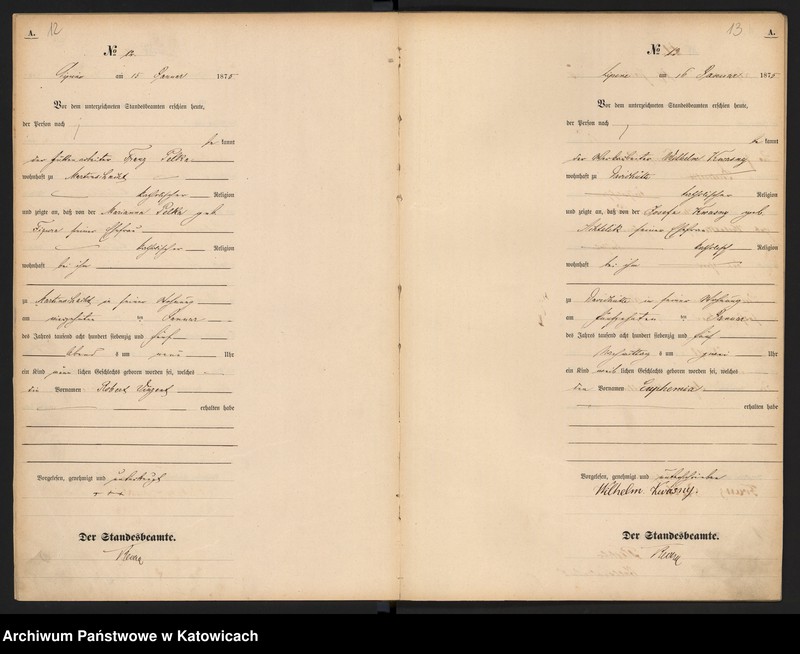 A. 12
№ 12.
Lipine am 15 Januar 1875
Vor dem unterzeichneten Standesbeamten erschien heute,
der Person nach
be kannt
der Franz Pelka
wohnhaft zu Martinschacht
katholischer Religion
und zeigte an, daß von der Marianna Pelka geb.
Figura seiner Ehefrau
katholischer Religion
wohnhaft bei ihm
zu Martinschacht in seiner Wohnung
am vierzehnten ten Januar
des Jahres tausend acht hundert siebenzig und fünf
Abend s um neun Uhr
ein Kind männ lichen Geschlechts geboren worden sei, welches
die Vornamen Robert Vinzent
erhalten habe
Vorgelesen, genehmigt und unterkreuzt
+ + +
Der Standesbeamte.
13 A.
№ 13.
Lipine am 16 Januar 1875
Vor dem unterzeichneten Standesbeamten erschien heute,
der Person nach
be kannt
der Wilhelm Kwasny
wohnhaft zu Davidhütte
katholischer Religion
und zeigte an, daß von der Josefa Kwasny geb.
seiner Ehefrau
katholisch Religion
wohnhaft bei ihm
zu Davidhütte in seiner Wohnung
am fünfzehnten ten Januar
des Jahres tausend acht hundert siebenzig und fünf
Nachmittag s um zwei Uhr
ein Kind weib lichen Geschlechts geboren worden sei, welches
den Vornamen Euphemia
erhalten habe
Vorgelesen, genehmigt und unterschrieben
Wilhelm Kwasny.
Der Standesbeamte.
Archiwum Państwowe w Katowicach